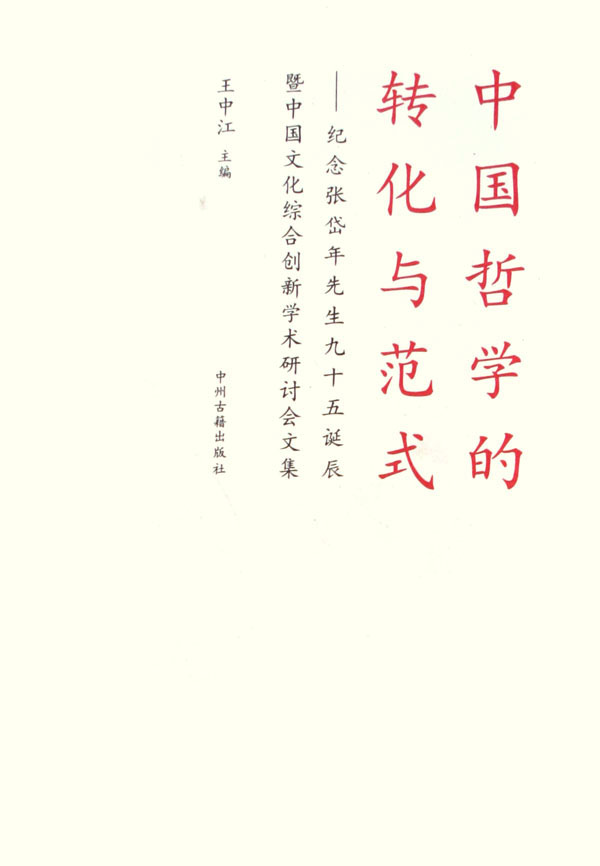 中国哲学的
转化与范式
——纪念张岱年先生九十五诞辰
暨中国文化综合创新学术研讨会文集
王中江 主编
中州古籍出版社